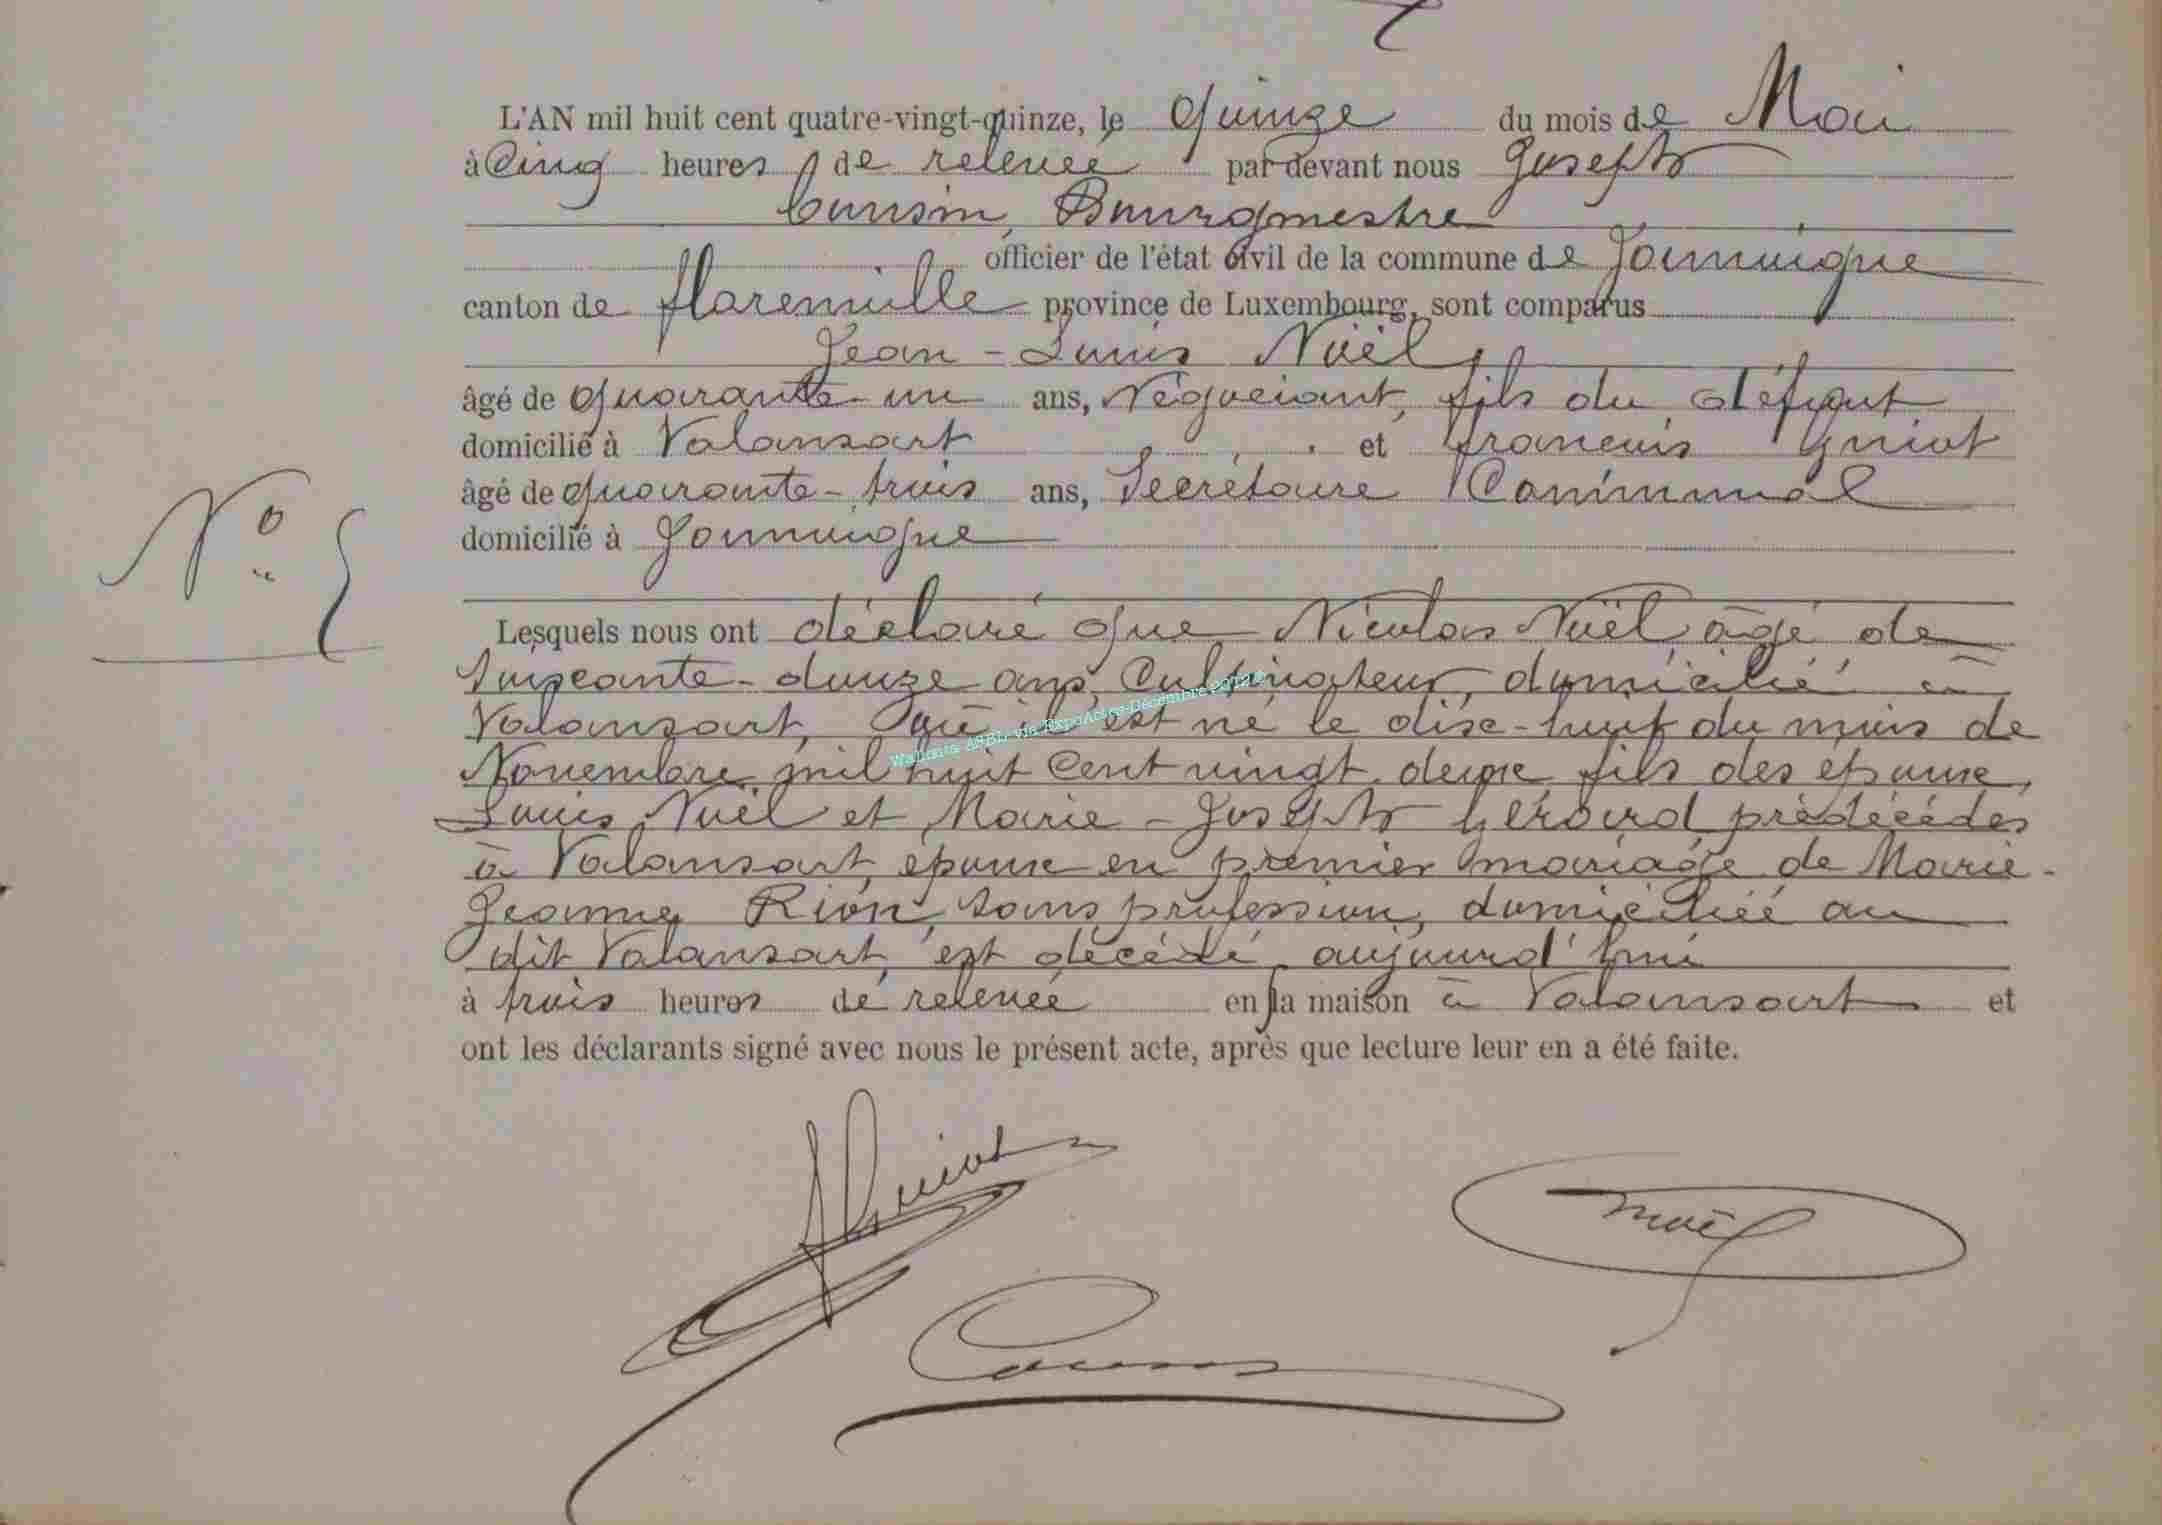 L'AN mil huit cent quatre-vingt-quinze, le quinze du mois de Mai
à Cinq heures de relevée par devant nous Joseph
Cousin, Bourgmestre
officier de l'état civil de la commune de Jamoigne
canton de florenville province de Luxembourg, sont comparus
Jean-Louis Noël
âgé de quarante-un ans, Négociant, fils du défunt
domicilié à Valansart et francois Guiot
âgé de quarante-trois ans, Secrétaire Communal
domicilié à Jamoigne
N° 5
Lesquels nous ont déclaré que Nicolas Noël âgé de
soixante-douze ans, Cultivateur, domicilié à
Valansart, où il est né le dix-huit du mois de
Novembre mil huit Cent vingt-deux, fils des époux
Louis Noël et Marie-Joseph Gérard prédécédés
à Valansart, époux en premier mariage de Marie-
Jeanne Rion, sans profession, domiciliée au
dit Valansart, est décédé aujourd'hui
à trois heures de relevée en sa maison à Valansart et
ont les déclarants signé avec nous le présent acte, après que lecture leur en a été faite.
Wallonia ASBL via ExpoActes-Décembre
Guiot
Noël
Cousin